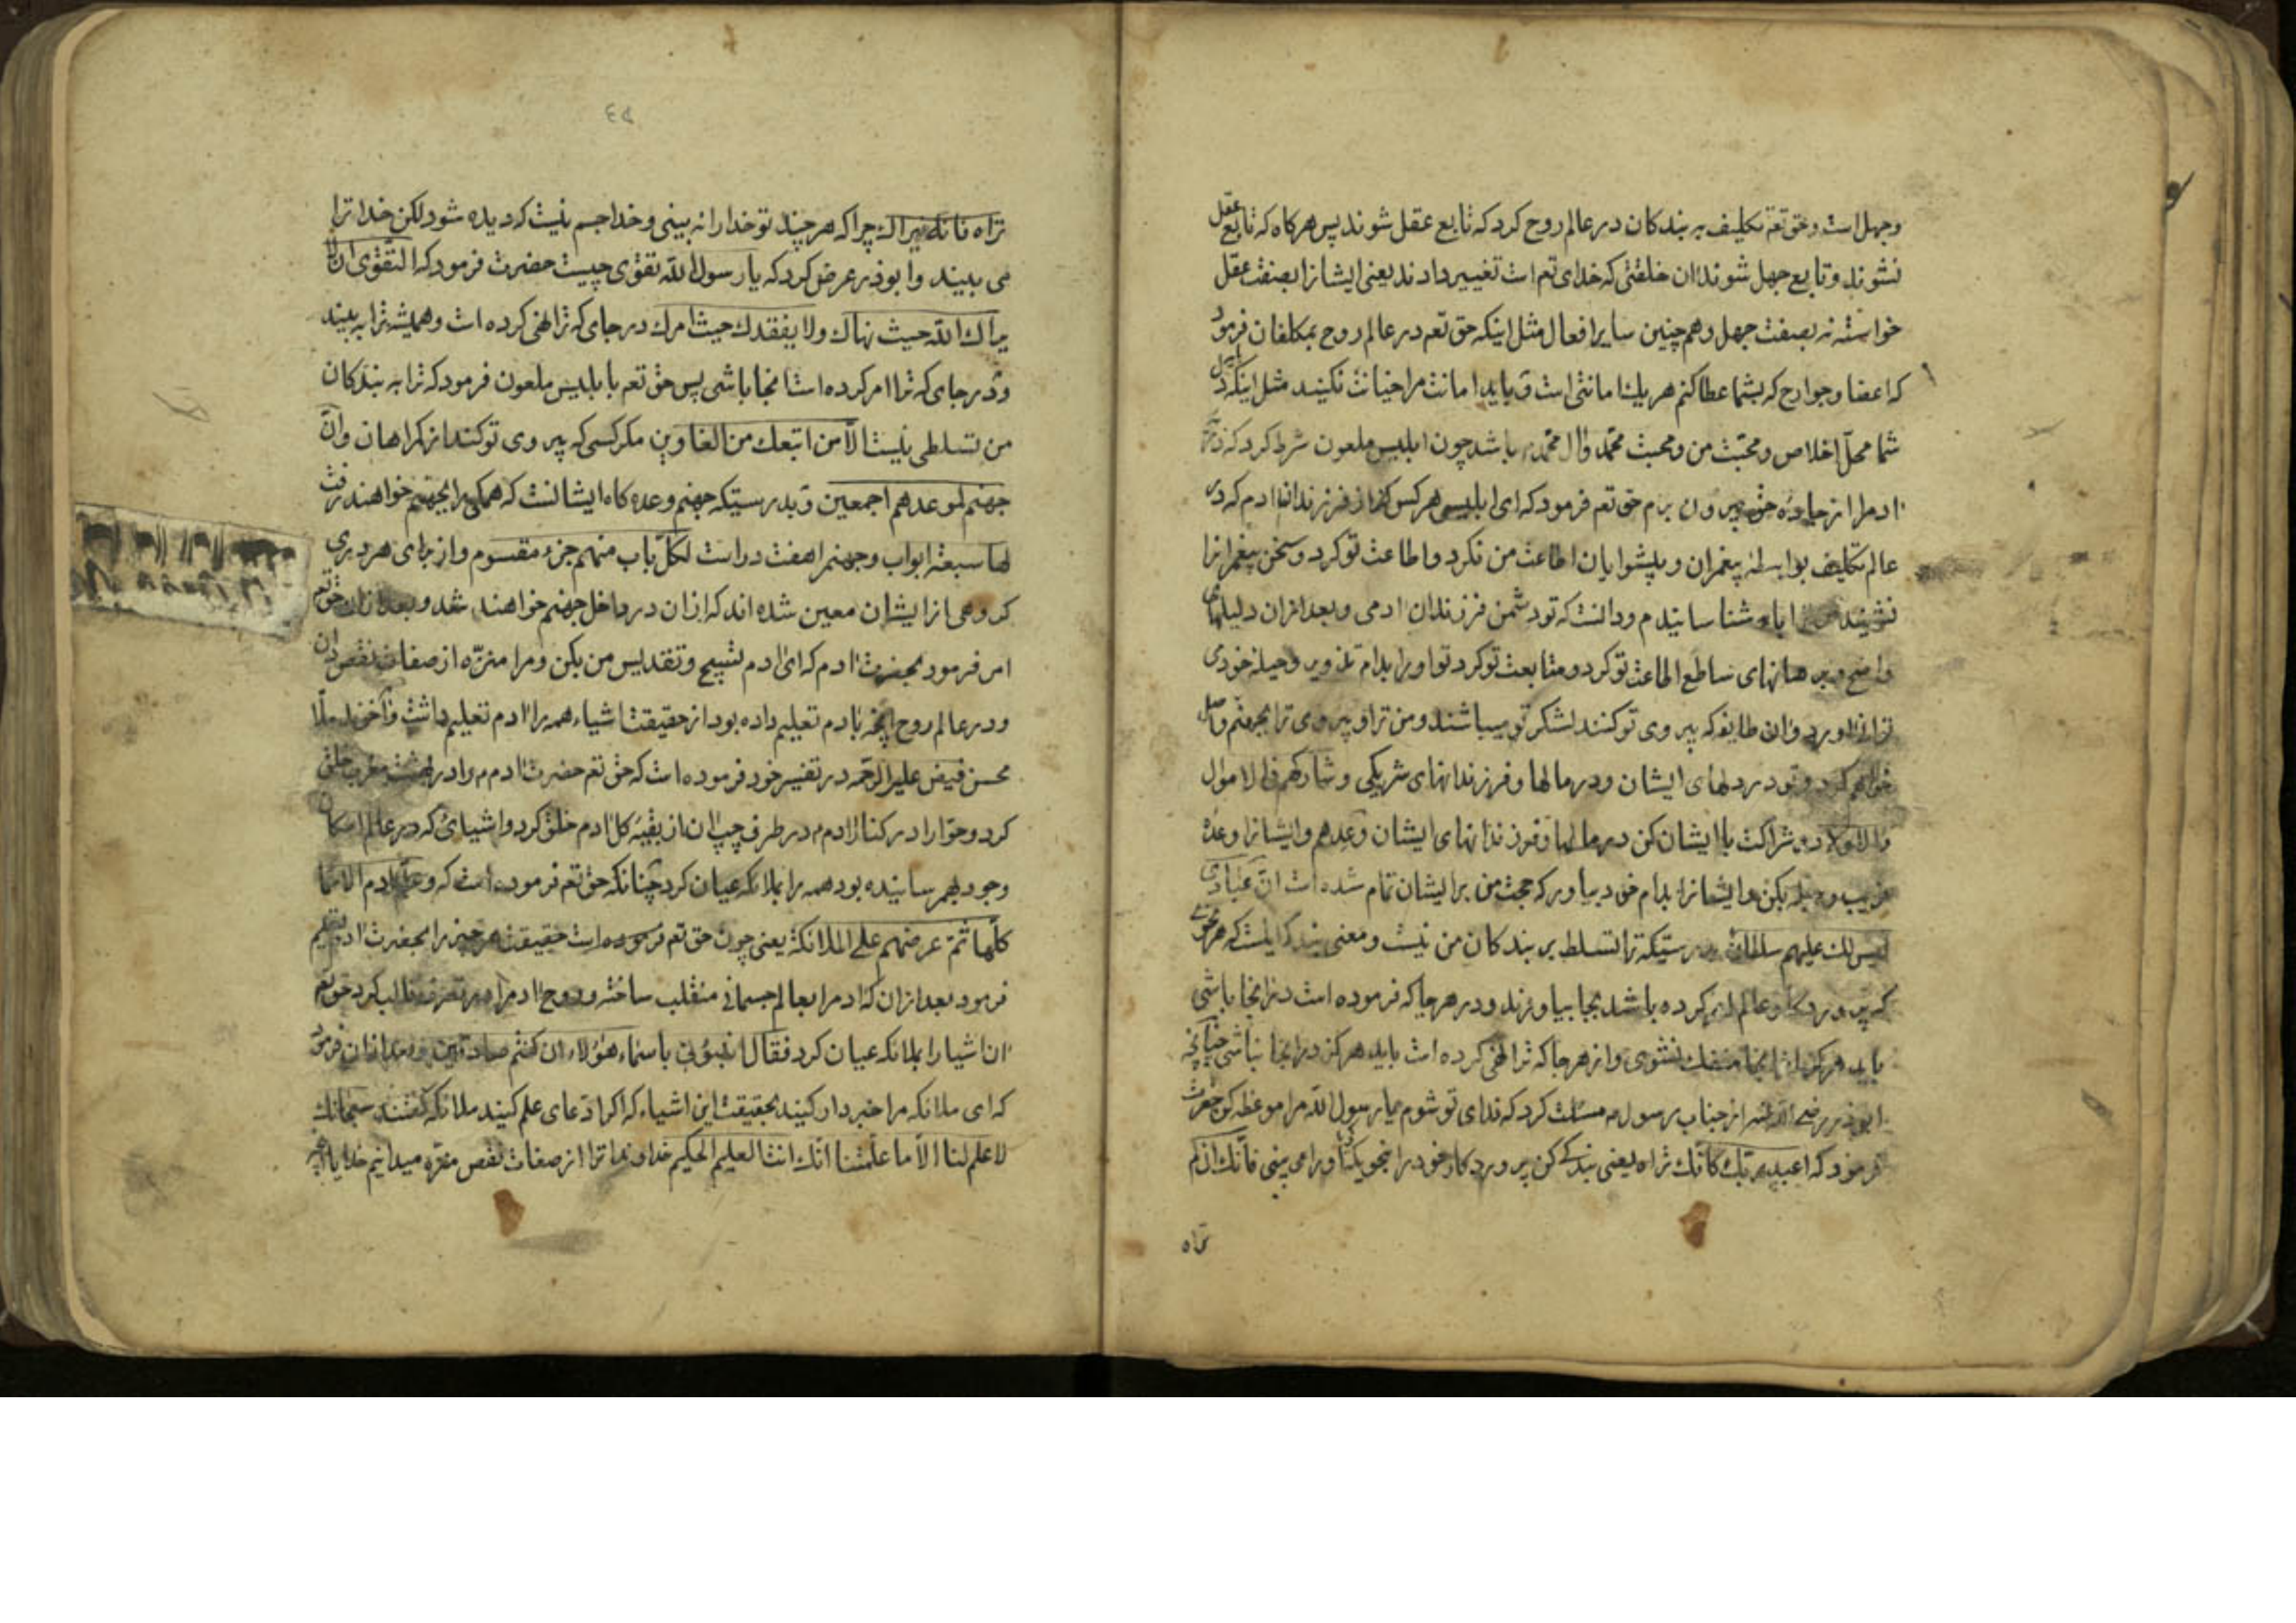 وجهل است وحق تعم تکلیف به بندکان در عالم روح کرد که تابع عقل شوند پس هر کاه که تابع عقل
نشوند وتابع جهل شوند ان خلقتی که خدای تعم است تغییر دادند یعنی ایشانرا بصنعت عقل
خواسته نه بصفت جهل وهم چنین سایر افعال مثل اینکه حق تعم در عالم روح بمکلفان فرمود
که اعضا وجوارح که بشما عطا کنم هر یك امانتی است و باید امانت مرا خیانت نکنید مثل اینکه
شما محل اخلاص ومحبت من ومحبت محمد وال محمد باشد چون ابلیس ملعون شرط کرد که
ادم را از جاده حق بیرون برم حق تعم فرمود که ای ابلیس هر کس که از فرزندان ادم که در
عالم تکلیف بواسطه پیغمران وپیشوایان اطاعت من نکرد واطاعت تو کرد وسخن پیغمرانرا
نشنید شناسانیدم ودانست که تو دشمن فرزندان ادمی وبعد ازان دلیلهای
واضح وبرهانهای ساطع اطاعت تو کرد ومتابعت تو کرد تو اورا بدام تزویر وحیله خودی
وان طایفه که پیروی تو کنند لشکر تو میباشند ومن ترا وپیروی ترا بجهنم واصل
خواهم کرد وتو در دلهای ایشان ودر مالها وفرزندانهای شریکی وشارکهم فی الاموال
والاولاد وشراکت با ایشان کن در مالها وفرزندانهای ایشان وعدهم وایشانرا وعده
فریب وحیله بکن وایشانرا بدام خود بیاور که حجت من بر ایشان تمام شده است ان عبادی
لیس لك علیهم سلطان بدرستیکه ترا تسلط بر بندکان من نیست ومعنی بندکی اینست که هر
که پروردکار عالم امر کرده باشد بجا بیاورند ودر هر جا که فرموده است در انجا باشی
باید هرکز از انجا منفك نشوی واز هر جا که ترا نهی کرده است باید هرکز در انجا نباشی چنانچه
ابوذر رضی الله عنه از جناب رسول مسئلت کرد که فدای تو شوم یا رسول الله مرا موعظه کن حضرت
فرمود که اعبد ربك کانك تراه یعنی بندکی کن پروردکار خود را بنحویکه اورا می بینی فانك ان لم
تراه
تراه فانه یراك چرا که هر چند تو خدا را نه بینی وخدا جسم نیست که دیده شود لکن خدا ترا
می بیند وابوذر عرض کرد که یا رسول الله تقوی چیست حضرت فرمود که التقوی ان لا
یراك الله حیث نهاك ولا یفقدك حیث امرك در جای که ترا نهی کرده است وهمیشه ترا به بیند
ودر جای که ترا امر کرده است انجا باشی پس حق تعم با ابلیس ملعون فرمود که ترا به بندکان
من تسلطی نیست الا من اتبعك من الغاوین مکر کسی که پیروی تو کند از کمراهان وان
جهنم لموعدهم اجمعین وبدرستیکه جهنم وعده کاه ایشانست که همکی را بجهنم خواهند رفت
لها سبعة ابواب وجهنم را هفت در است لکل باب منهم جزء مقسوم واز برای هر دری
کروهی از ایشان معین شده اند که ازان در داخل جهنم خواهند شد وبعد ازان حق تعم
امر فرمود بحضرت ادم که ای ادم تسبیح وتقدیس من بکن ومرا منزه از صفات نقص دان
ودر عالم روح انچه بادم تعلیم داده بود از حقیقت اشیاء همه را ادم تعلیم داشت واخوند ملا
محسن فیض علیه الرحمه در تفسیر خود فرموده است که حق تعم حضرت ادم را در بهشت مغرب خلق
کرد وحوا را در کنار ادم در طرف چپ ان از بقیه کل ادم خلق کرد واشیائی که در عالم امکان
وجود بهم رسانیده بود همه را بملائکه عیان کرد چنانکه حق تعم فرموده است که وعلم ادم الاسما
کلها ثم عرضهم علی الملائکة یعنی چون حق تعم فرموده است حقیقت هر چیز را بحضرت ادم تعلیم
فرمود بعد ازان که ادم را بعالم جسمانی منقلب ساخته وروح ادم را در تصرف قالب کرد حق تعم
ان اشیا را بملائکه عیان کرد فقال انبئونی باسماء هؤلاء ان کنتم صادقین وبعد ازان فرمود
که ای ملائکه مرا خبردار کنید بحقیقت این اشیاء که اکر ادعای علم کنید ملائکه کفتند سبحانك
لا علم لنا الا ما علمتنا انك انت العلیم الحکیم خداوندا ترا از صفات نقص منزه میدانیم خدایا